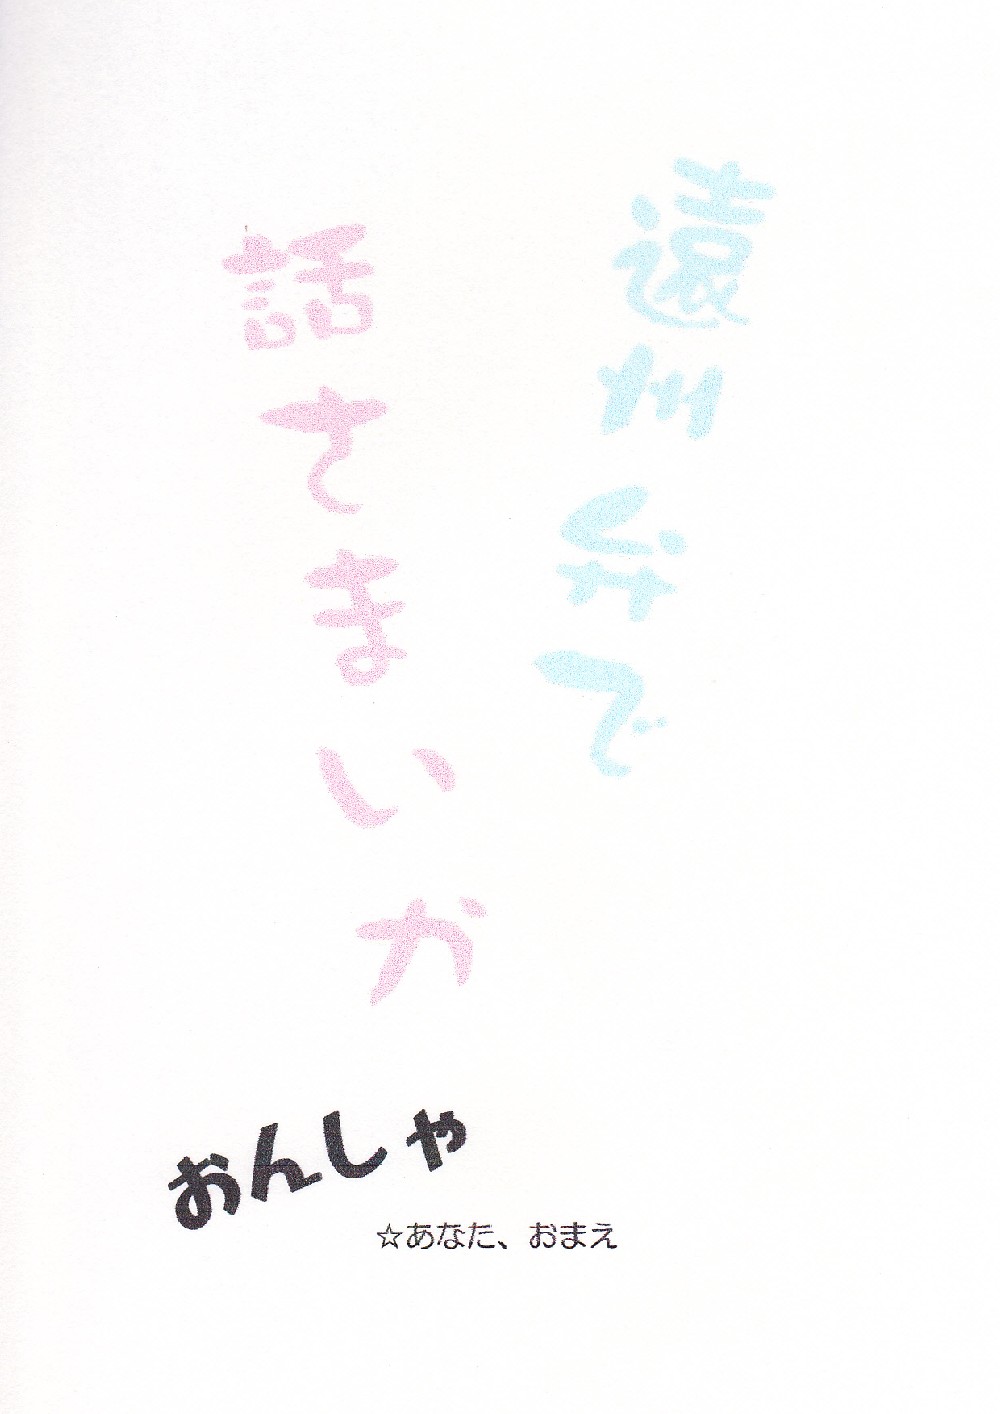 遠州弁で
話てまいか
おんしゃ
☆あなた、おまえ